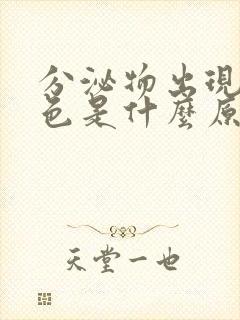 分泌物出現
色是什麼原
天堂一也